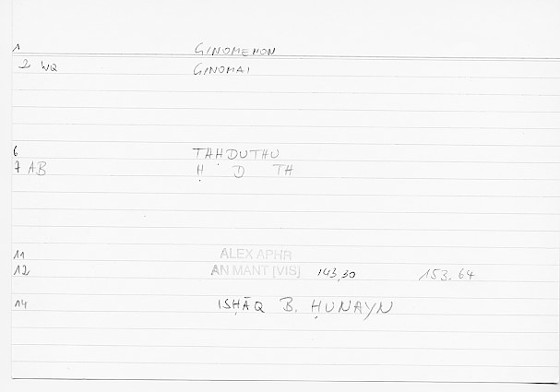 1 GINOMENON
2 WQ GINOMAI
6 TAHDUTHU
7 AB Ḥ D TH
11 ALEX APHR
12 AN MANT [VIS] 143,30 153,64
14 ISḤĀQ B. ḤUNAYN